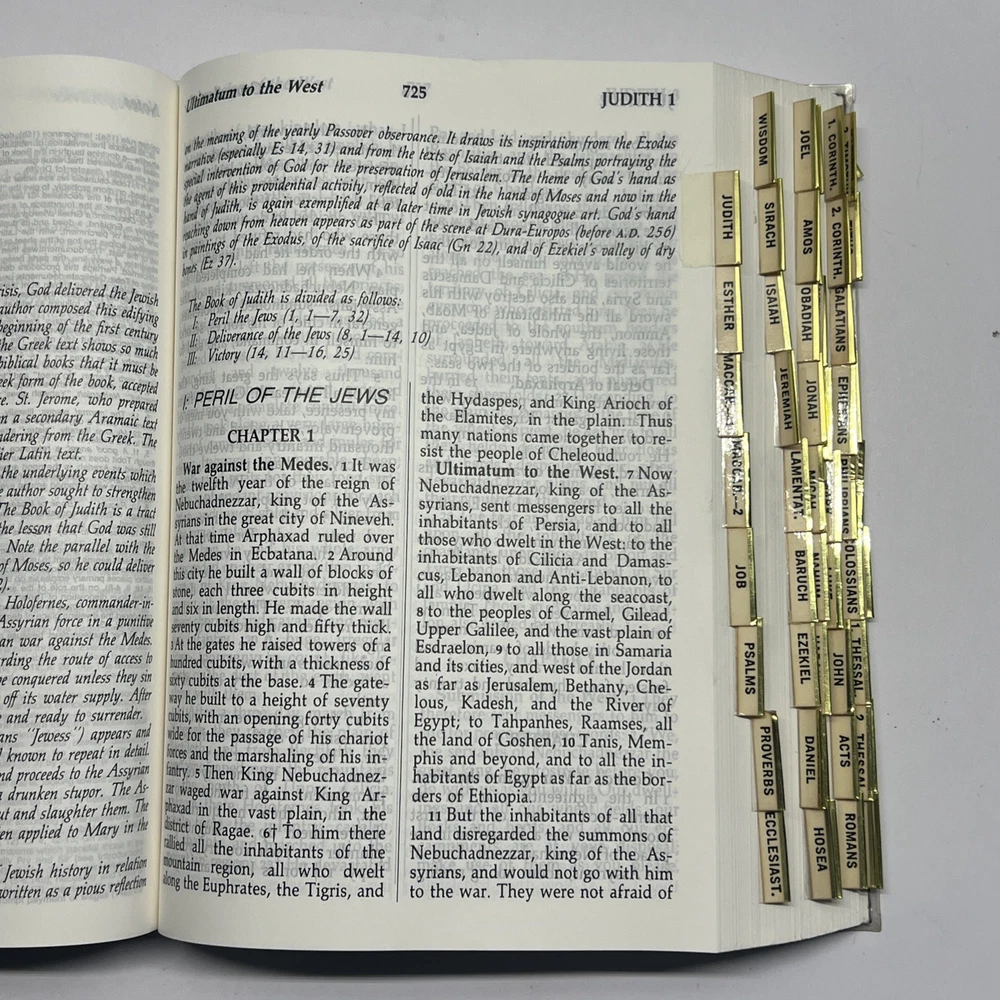 risis, God delivered the Jewish
author composed this edifying
beginning of the first century
the Greek text shows so much
biblical books that it must be
eek form of the book, accepted
e. St. Jerome, who prepared
n a secondary Aramaic text
ndering from the Greek. The
ier Latin text.
the underlying events which
e author sought to strengthen
The Book of Judith is a tract
the lesson that God was still
Note the parallel with the
of Moses, so he could deliver
2).
Holofernes, commander-in-
Assyrian force in a punitive
an war against the Medes.
rding the route of access to
e conquered unless they sin
off its water supply. After
and ready to surrender.
ans "Jewess") appears and
known to repeat in detail.
nd proceeds to the Assyrian
a drunken stupor. The As-
ut and slaughter them. The
en applied to Mary in the
Jewish history in relation
written as a pious reflection
Ultimatum to the West 725 JUDITH 1
on the meaning of the yearly Passover observance. It draws its inspiration from the Exodus
narrative (especially Es 14, 31) and from the texts of Isaiah and the Psalms portraying the
special intervention of God for the preservation of Jerusalem. The theme of God's hand as
the agent of this providential activity, reflected of old in the hand of Moses and now in the
hand of Judith, is again exemplified at a later time in Jewish synagogue art. God's hand
reaching down from heaven appears as part of the scene at Dura-Europos (before A.D. 256)
in paintings of the Exodus, of the sacrifice of Isaac (Gn 22), and of Ezekiel's valley of dry
bones (Ez 37).
The Book of Judith is divided as follows:
I: Peril of the Jews (1, 1—7, 32)
II: Deliverance of the Jews (8, 1—14, 10)
III: Victory (14, 11—16, 25)
I: PERIL OF THE JEWS
CHAPTER 1
War against the Medes. 1 It was
the twelfth year of the reign of
Nebuchadnezzar, king of the As-
syrians in the great city of Nineveh.
At that time Arphaxad ruled over
the Medes in Ecbatana. 2 Around
this city he built a wall of blocks of
stone, each three cubits in height
and six in length. He made the wall
seventy cubits high and fifty thick.
3 At the gates he raised towers of a
hundred cubits, with a thickness of
sixty cubits at the base. 4 The gate-
way he built to a height of seventy
cubits, with an opening forty cubits
wide for the passage of his chariot
forces and the marshaling of his in-
fantry. 5 Then King Nebuchadnez-
zar waged war against King Ar-
phaxad in the vast plain, in the
district of Ragae. 6† To him there
rallied all the inhabitants of the
mountain region, all who dwelt
along the Euphrates, the Tigris, and
the Hydaspes, and King Arioch of
the Elamites, in the plain. Thus
many nations came together to re-
sist the people of Cheleoud.
Ultimatum to the West. 7 Now
Nebuchadnezzar, king of the As-
syrians, sent messengers to all the
inhabitants of Persia, and to all
those who dwelt in the West: to the
inhabitants of Cilicia and Damas-
cus, Lebanon and Anti-Lebanon, to
all who dwelt along the seacoast,
8 to the peoples of Carmel, Gilead,
Upper Galilee, and the vast plain of
Esdraelon, 9 to all those in Samaria
and its cities, and west of the Jordan
as far as Jerusalem, Bethany, Che-
lous, Kadesh, and the River of
Egypt; to Tahpanhes, Raamses, all
the land of Goshen, 10 Tanis, Mem-
phis and beyond, and to all the in-
habitants of Egypt as far as the bor-
ders of Ethiopia.
11 But the inhabitants of all that
land disregarded the summons of
Nebuchadnezzar, king of the As-
syrians, and would not go with him
to the war. They were not afraid of
JUDITH
ESTHER
MACCAB.
MACCAB.-2
JOB
PSALMS
PROVERBS
ECCLESIAST.
WISDOM
SIRACH
ISAIAH
JEREMIAH
LAMENTAT.
BARUCH
EZEKIEL
DANIEL
HOSEA
JOEL
AMOS
OBADIAH
JONAH
JOHN
ACTS
ROMANS
1. CORINTH.
2. CORINTH.
GALATIANS
EPHESIANS
PHILIPPIANS
COLOSSIANS
1 THESSAL.
2 THESSAL